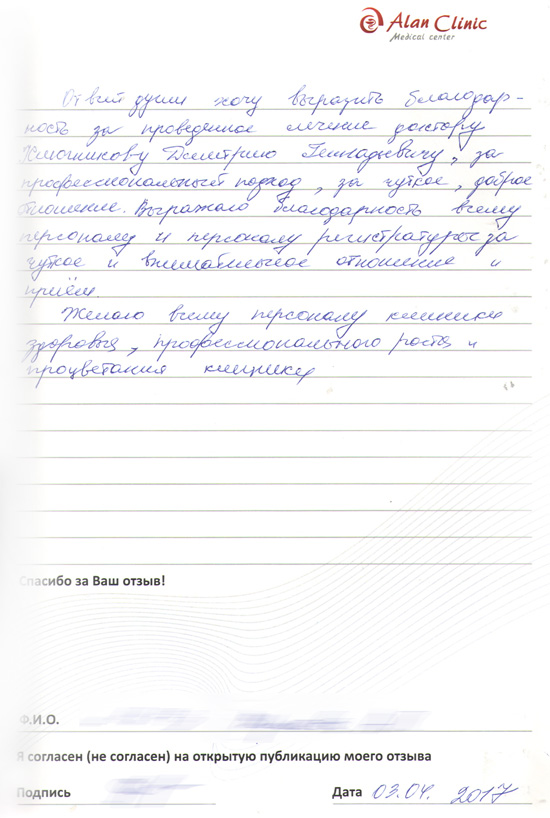 Alan Clinic
Medical center
От всей души хочу выразить благодар-
ность за проведенное лечение доктору
Ключникову Дмитрию Геннадьевичу, за
профессиональный подход, за чуткое, доброе
отношение. Выражаю благодарность всему
персоналу и персоналу регистратуры за
чуткое и внимательное отношение и
приём.
Желаю всему персоналу клиники
здоровья, профессионального роста и
процветания клинике
Спасибо за Ваш отзыв!
Ф.И.О.
Я согласен (не согласен) на открытую публикацию моего отзыва
Подпись Дата 03.04. 2017